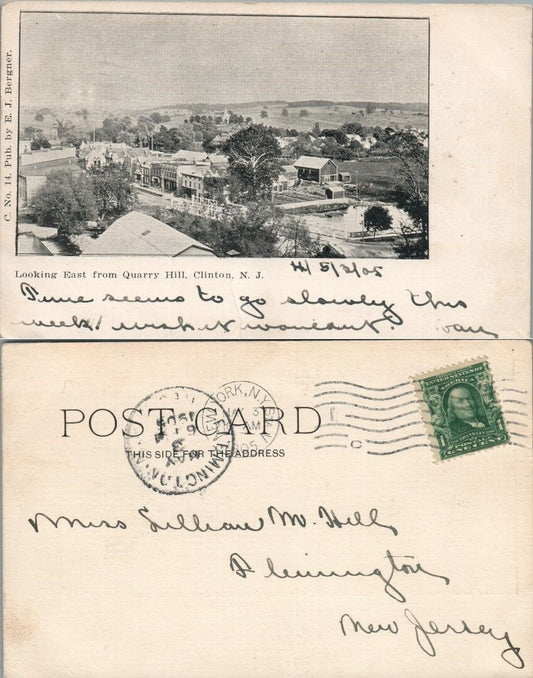 C. No. 14. Pub. by E. J. Bergner.
Looking East from Quarry Hill, Clinton, N. J.
5/3/05
Time seems to go slowly this
week/ wish it wouldn't.
POST CARD
THIS SIDE FOR THE ADDRESS
FLEMINGTON
MAY
3
1905
YORK, N.Y.
3
AM
UNITED STATES OF AMERICA
Miss Lillian M. Hill,
Flemington,
New Jersey